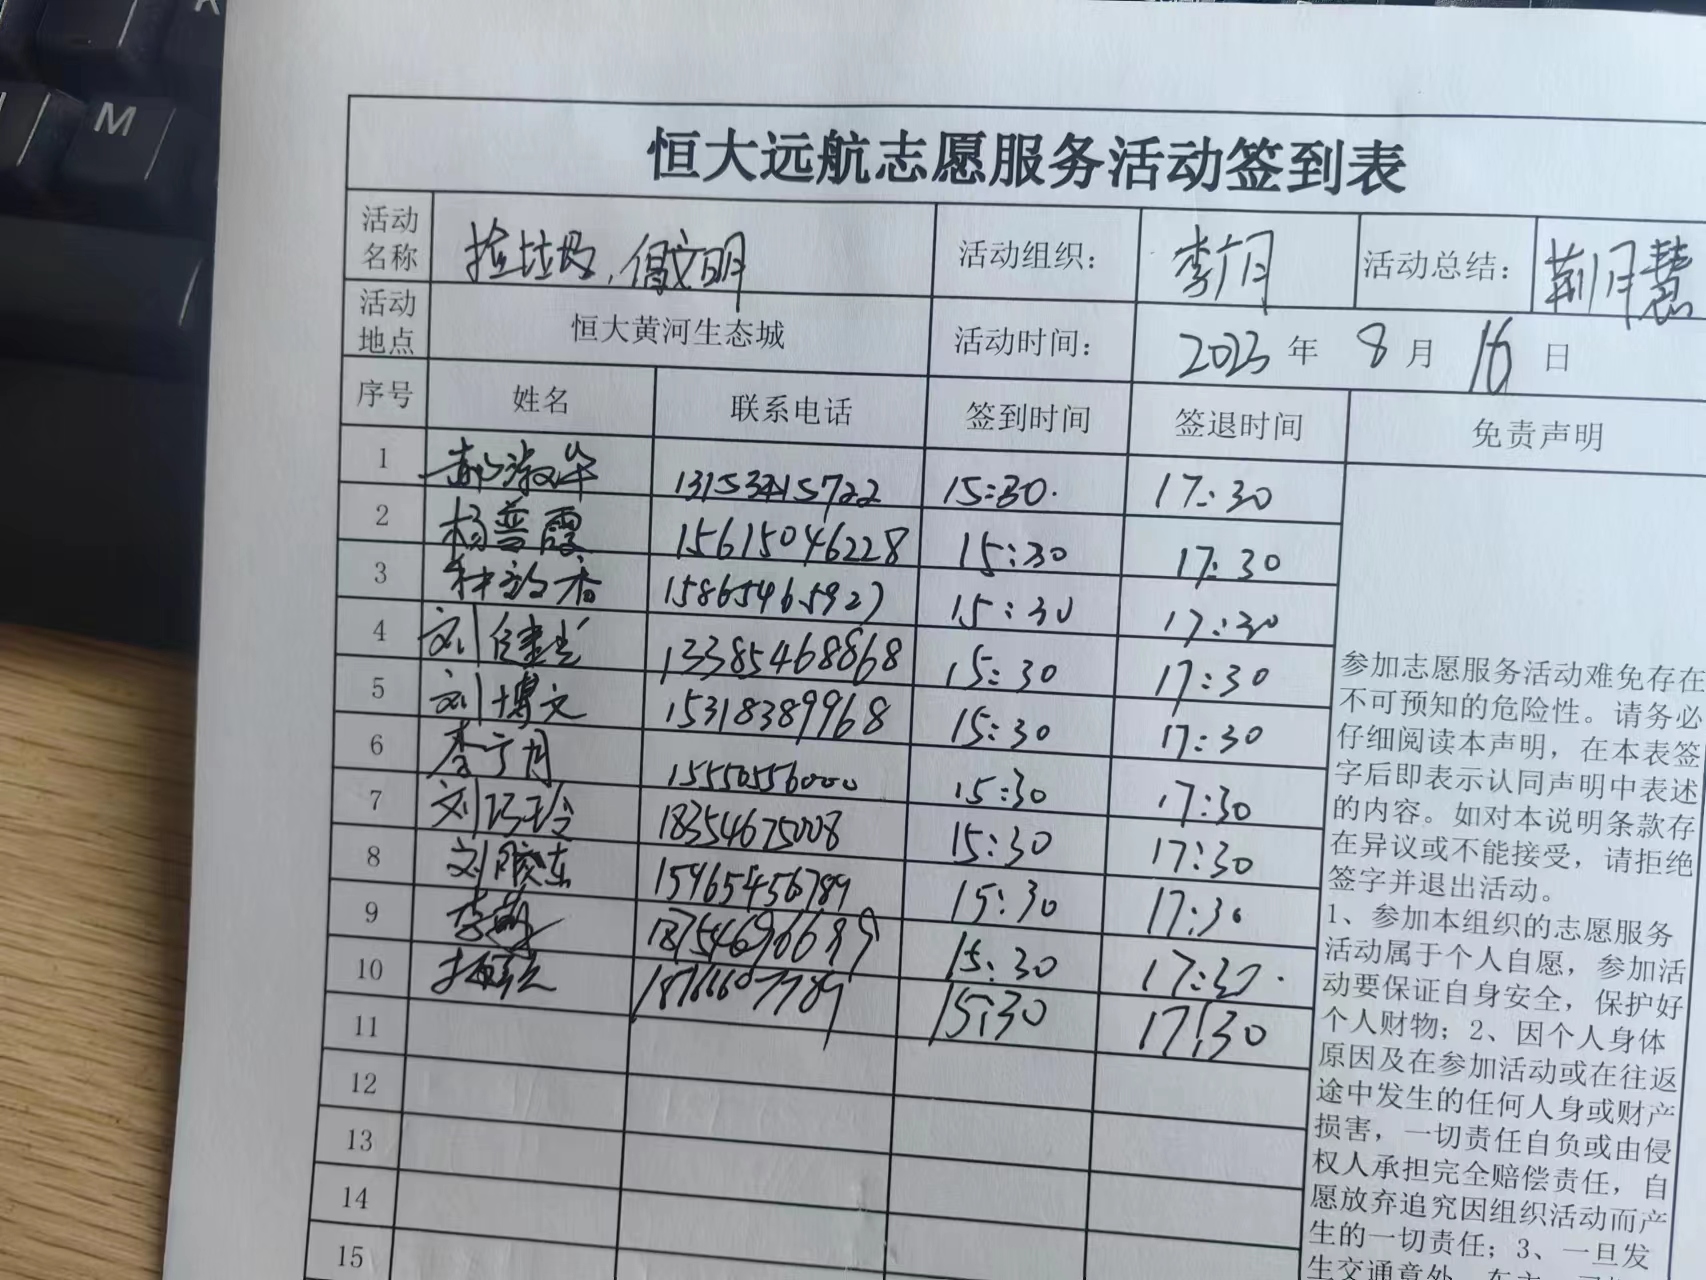 M
恒大远航志愿服务活动签到表
活动名称 捡垃圾,倡文明 活动组织: 李广月 活动总结: 荆月慧
活动地点 恒大黄河生态城 活动时间: 2023 年 8 月 16 日
序号 姓名 联系电话 签到时间 签退时间 免责声明
1 郝淑华 15:30. 17:30
2 杨普霞 15615046228 15:30 17:30
3 15865465927 15:30 17:30
4 刘健 13385468868 15:30 17:30
5 刘博文 15318389968 15:30 17:30
6 李广月 15550556000 15:30 17:30
7 刘巧玲 18354675008 15:30 17:30
8 刘胶东 15465456789 15:30 17:30
9 李 18754696689 15:30 17:30.
10 15:30 17:30
11
12
13
14
15
参加志愿服务活动难免存在
不可预知的危险性。请务必
仔细阅读本声明，在本表签
字后即表示认同声明中表述
的内容。如对本说明条款存
在异议或不能接受，请拒绝
签字并退出活动。
1、参加本组织的志愿服务
活动属于个人自愿，参加活
动要保证自身安全，保护好
个人财物；2、因个人身体
原因及在参加活动或在往返
途中发生的任何人身或财产
损害，一切责任自负或由侵
权人承担完全赔偿责任，自
愿放弃追究因组织活动而产
生的一切责任；3、一旦发
生交通意外